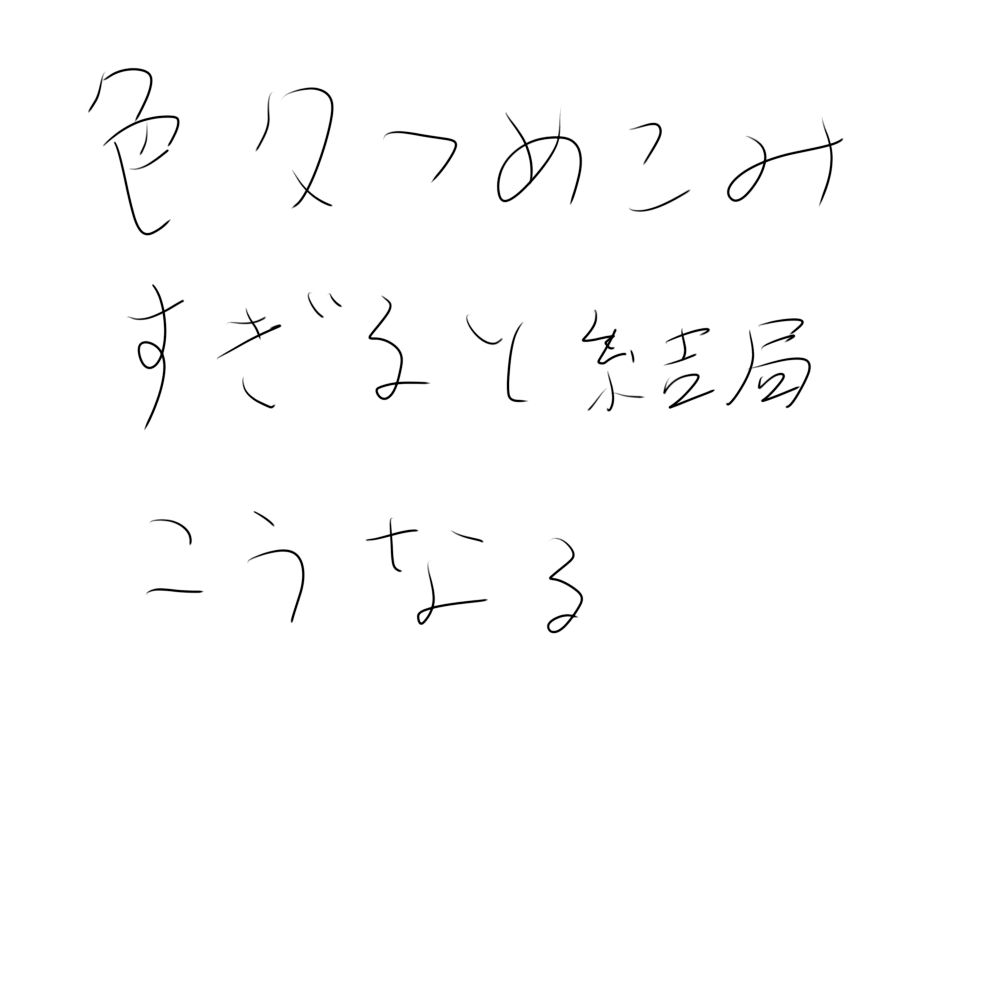 色々つめこみ
すぎると結局
こうなる